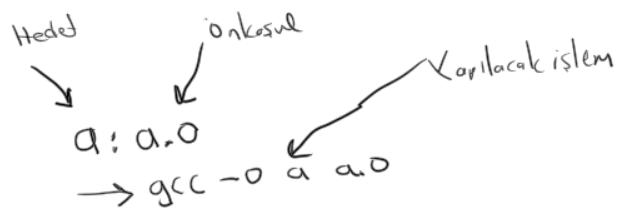 Hedef
önkoşul
Yapılacak işlem
a: a.o
→ gcc -o a a.o